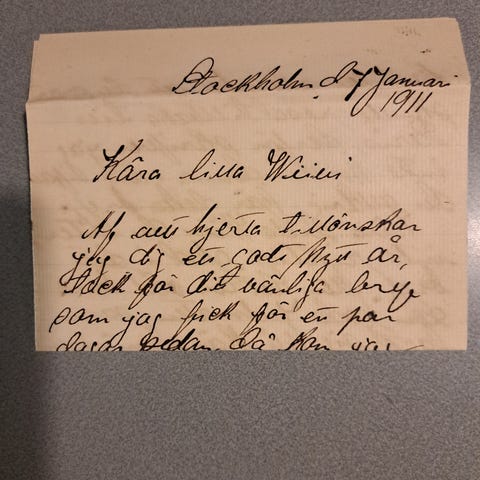 Stockholm d 7 Januari
1911
Kära lilla
Af allt hjerta tillönskar
jag dig ett godt nytt år,
tack för ditt vänliga bref
som jag fick för en par
dagar sedan. Då kom jag